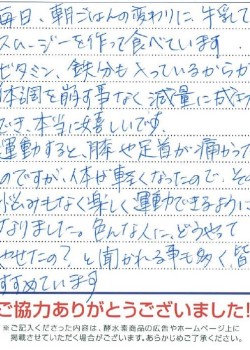 毎日、朝ごはんの変わりに、牛乳で
スムージーを作って食べています
ビタミン、鉄分も入っているからか
体調を崩す事なく減量に成功
でき、本当に嬉しいです。
運動すると、膝や足首が痛かって
のですが、体が軽くなったので、その
悩みもなく楽しく運動できるように
なりました。色んな人に、どうやって
やせたの？と聞かれる事も多く皆
すすめています
ご協力ありがとうございました！
※ご記入くださった内容は、酵水素商品の広告やホームページ上に
掲載させていただく場合がございます。あらかじめご了承ください。